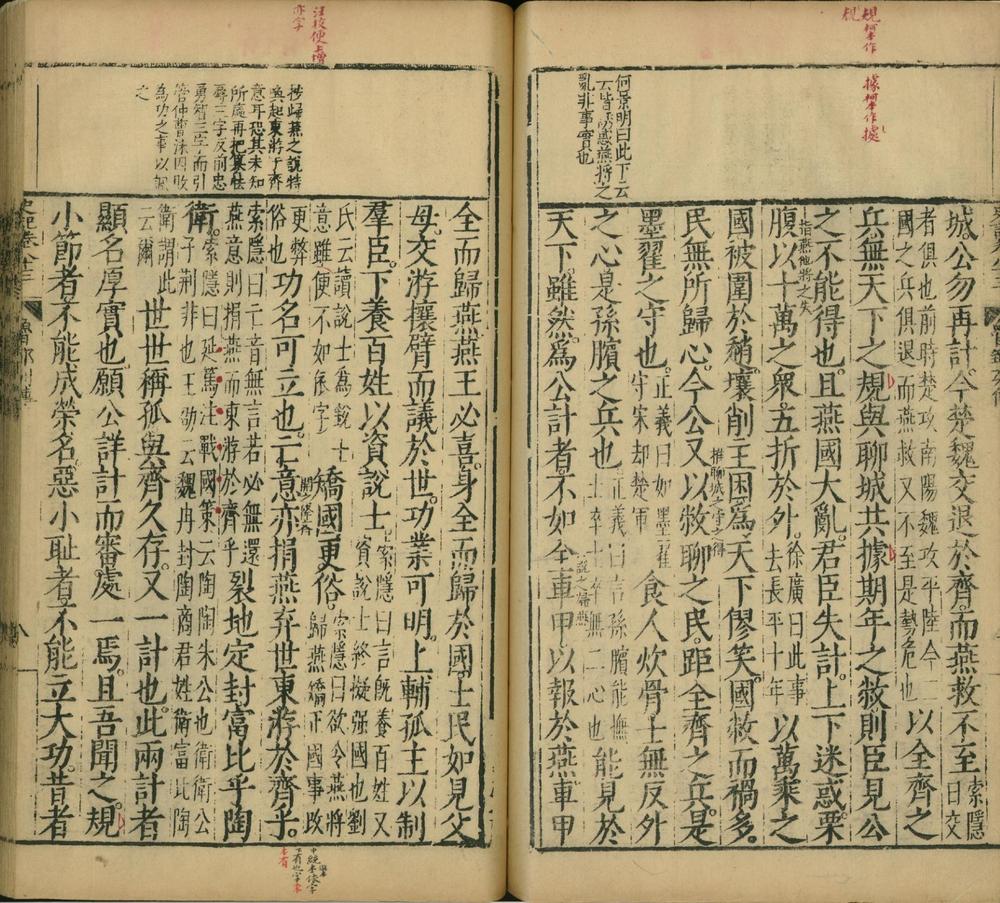 規柯本作
規
據柯本作處
何景明曰此下云
云皆誘惑燕將之
亂非事實也
城公勿再計今楚魏交退於齊而燕救不至索隱曰交
者俱也前時楚攻南陽魏攻平陸今二
國之兵俱退而燕救又不至是勢危也以全齊之
兵無天下之規與聊城共據期年之敝則臣見公
之不能得也且燕國大亂君臣失計上下迷惑栗
指燕他將之失
腹以十萬之眾五折於外徐廣曰此事
去長平十年以萬乘之
國被圍於趙壤削主困為天下僇笑國敝而禍多
推聊城之守之得
民無所歸心今公又以敝聊之民距全齊之兵是
墨翟之守也正義曰如墨翟
守宋却楚軍食人炊骨士無反外
之心是孫臏之兵也正義曰言孫臏能撫
士卒士卒無二心也能見於
天下雖然為公計者不如全車甲以報於燕車甲
說之歸燕
汪校便上增
亦字
抄歸燕之說特
喚起東游于齊
意耳恐其未知
所處再把纂怯
辱三字反前忠
勇智三字而引
管仲曹沫因敗
為功之事以諷
之
全而歸燕燕王必喜身全而歸於國士民如見父
母交游攘臂而議於世功業可明上輔孤主以制
羣臣下養百姓以資說士索隱曰言旣養百姓又
資說士終擬強國也劉
氏云讀說士為銳士
意雖便不如依字矯國更俗索隱曰欲令燕將
歸燕矯正國事改
更弊
俗也功名可立也亡意亦捐燕弃世東游於齊乎
索隱曰亡音無言若必無還
燕意則捐燕而東游於齊乎裂地定封富比乎陶
衛索隱曰延篤注戰國策云陶陶朱公也衛衛公
子荆非也王劭云魏冉封陶商君姓衛富比陶
衛謂此
云爾世世稱孤與齊久存又一計也此兩計者
顯名厚實也願公詳計而審處一焉且吾聞之規
小節者不能成榮名惡小恥者不能立大功昔者